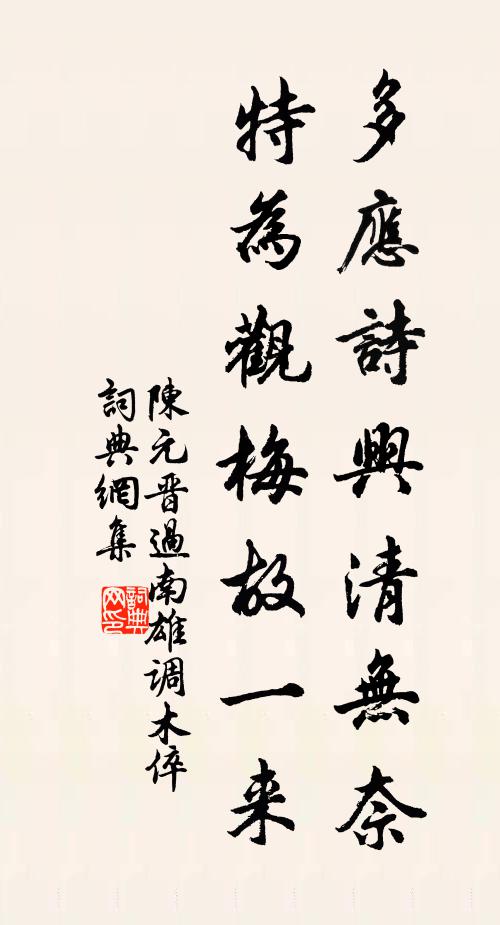 多應詩興清無奈
特為觀梅故一来
陳元晋過南雄調木倅
詞典網集
詞典网印